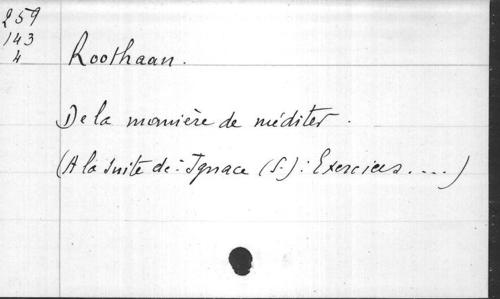 259
143
4
Roothaan.
De la manière de méditer.
(A la suite de : Ignace (S.) : Exercices ....)